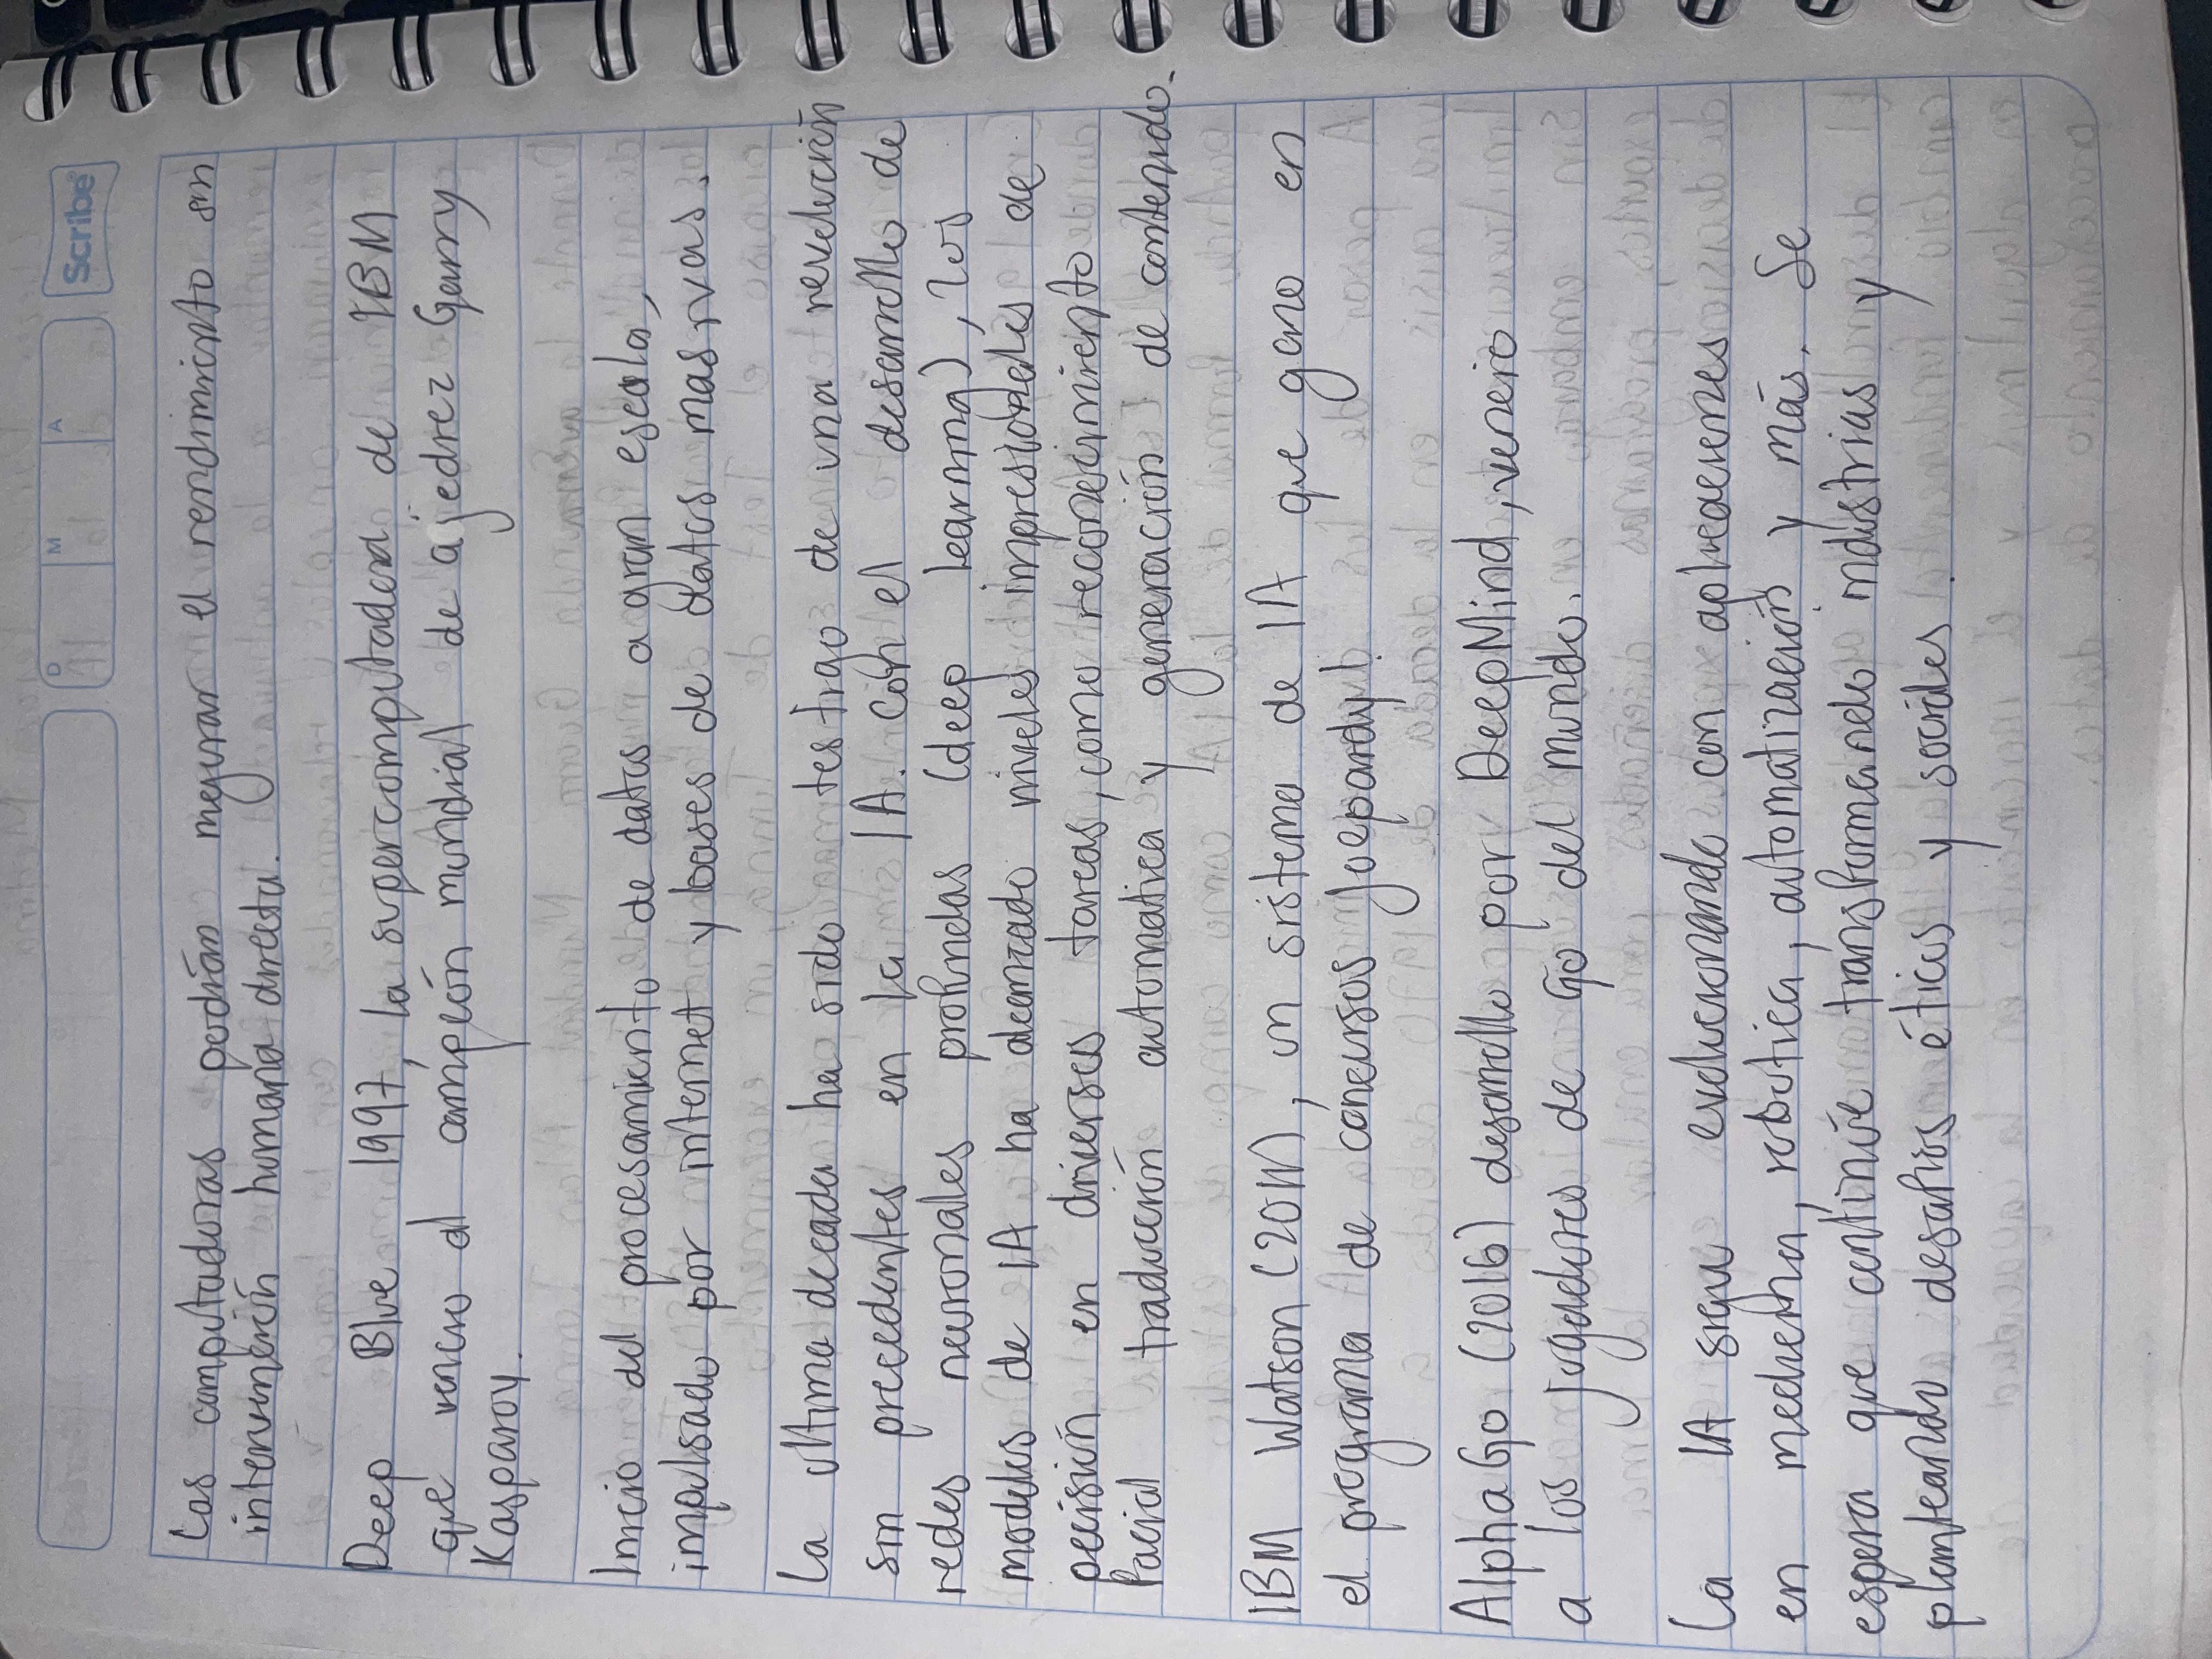 D M A Scribe
Las computadoras podrían mejorar el rendimiento sin
intervención humana directa.
Deep Blue 1997, la supercomputadora de IBM
que vencio al campeón mundial de ajedrez Garry
Kasparov.
Inicio del procesamiento de datos a gran escala,
impulsado por internet y bases de datos masivas.
La ultima decada ha sido testigo de una revolución
sin precedentes en la IA. Con el desarrollo de
redes neuronales profundas (deep learning), los
modelos de IA ha alcanzado niveles de
en diversas tareas, como reconocimiento
facial traducción automatica y generación de contenido.
IBM Watson (2011), un sistema de IA que gano en
el programa de concursos Joepardy!
AlphaGo (2016) desarrollo por DeepMind, vencio
a los jugadores de Go del mundo.
La IA sigue evolucionando con aplicaciones
en medicina, robotica, automatización y más. Se
espera que continúe transformando industrias y
planteando desafios éticos y sociales.